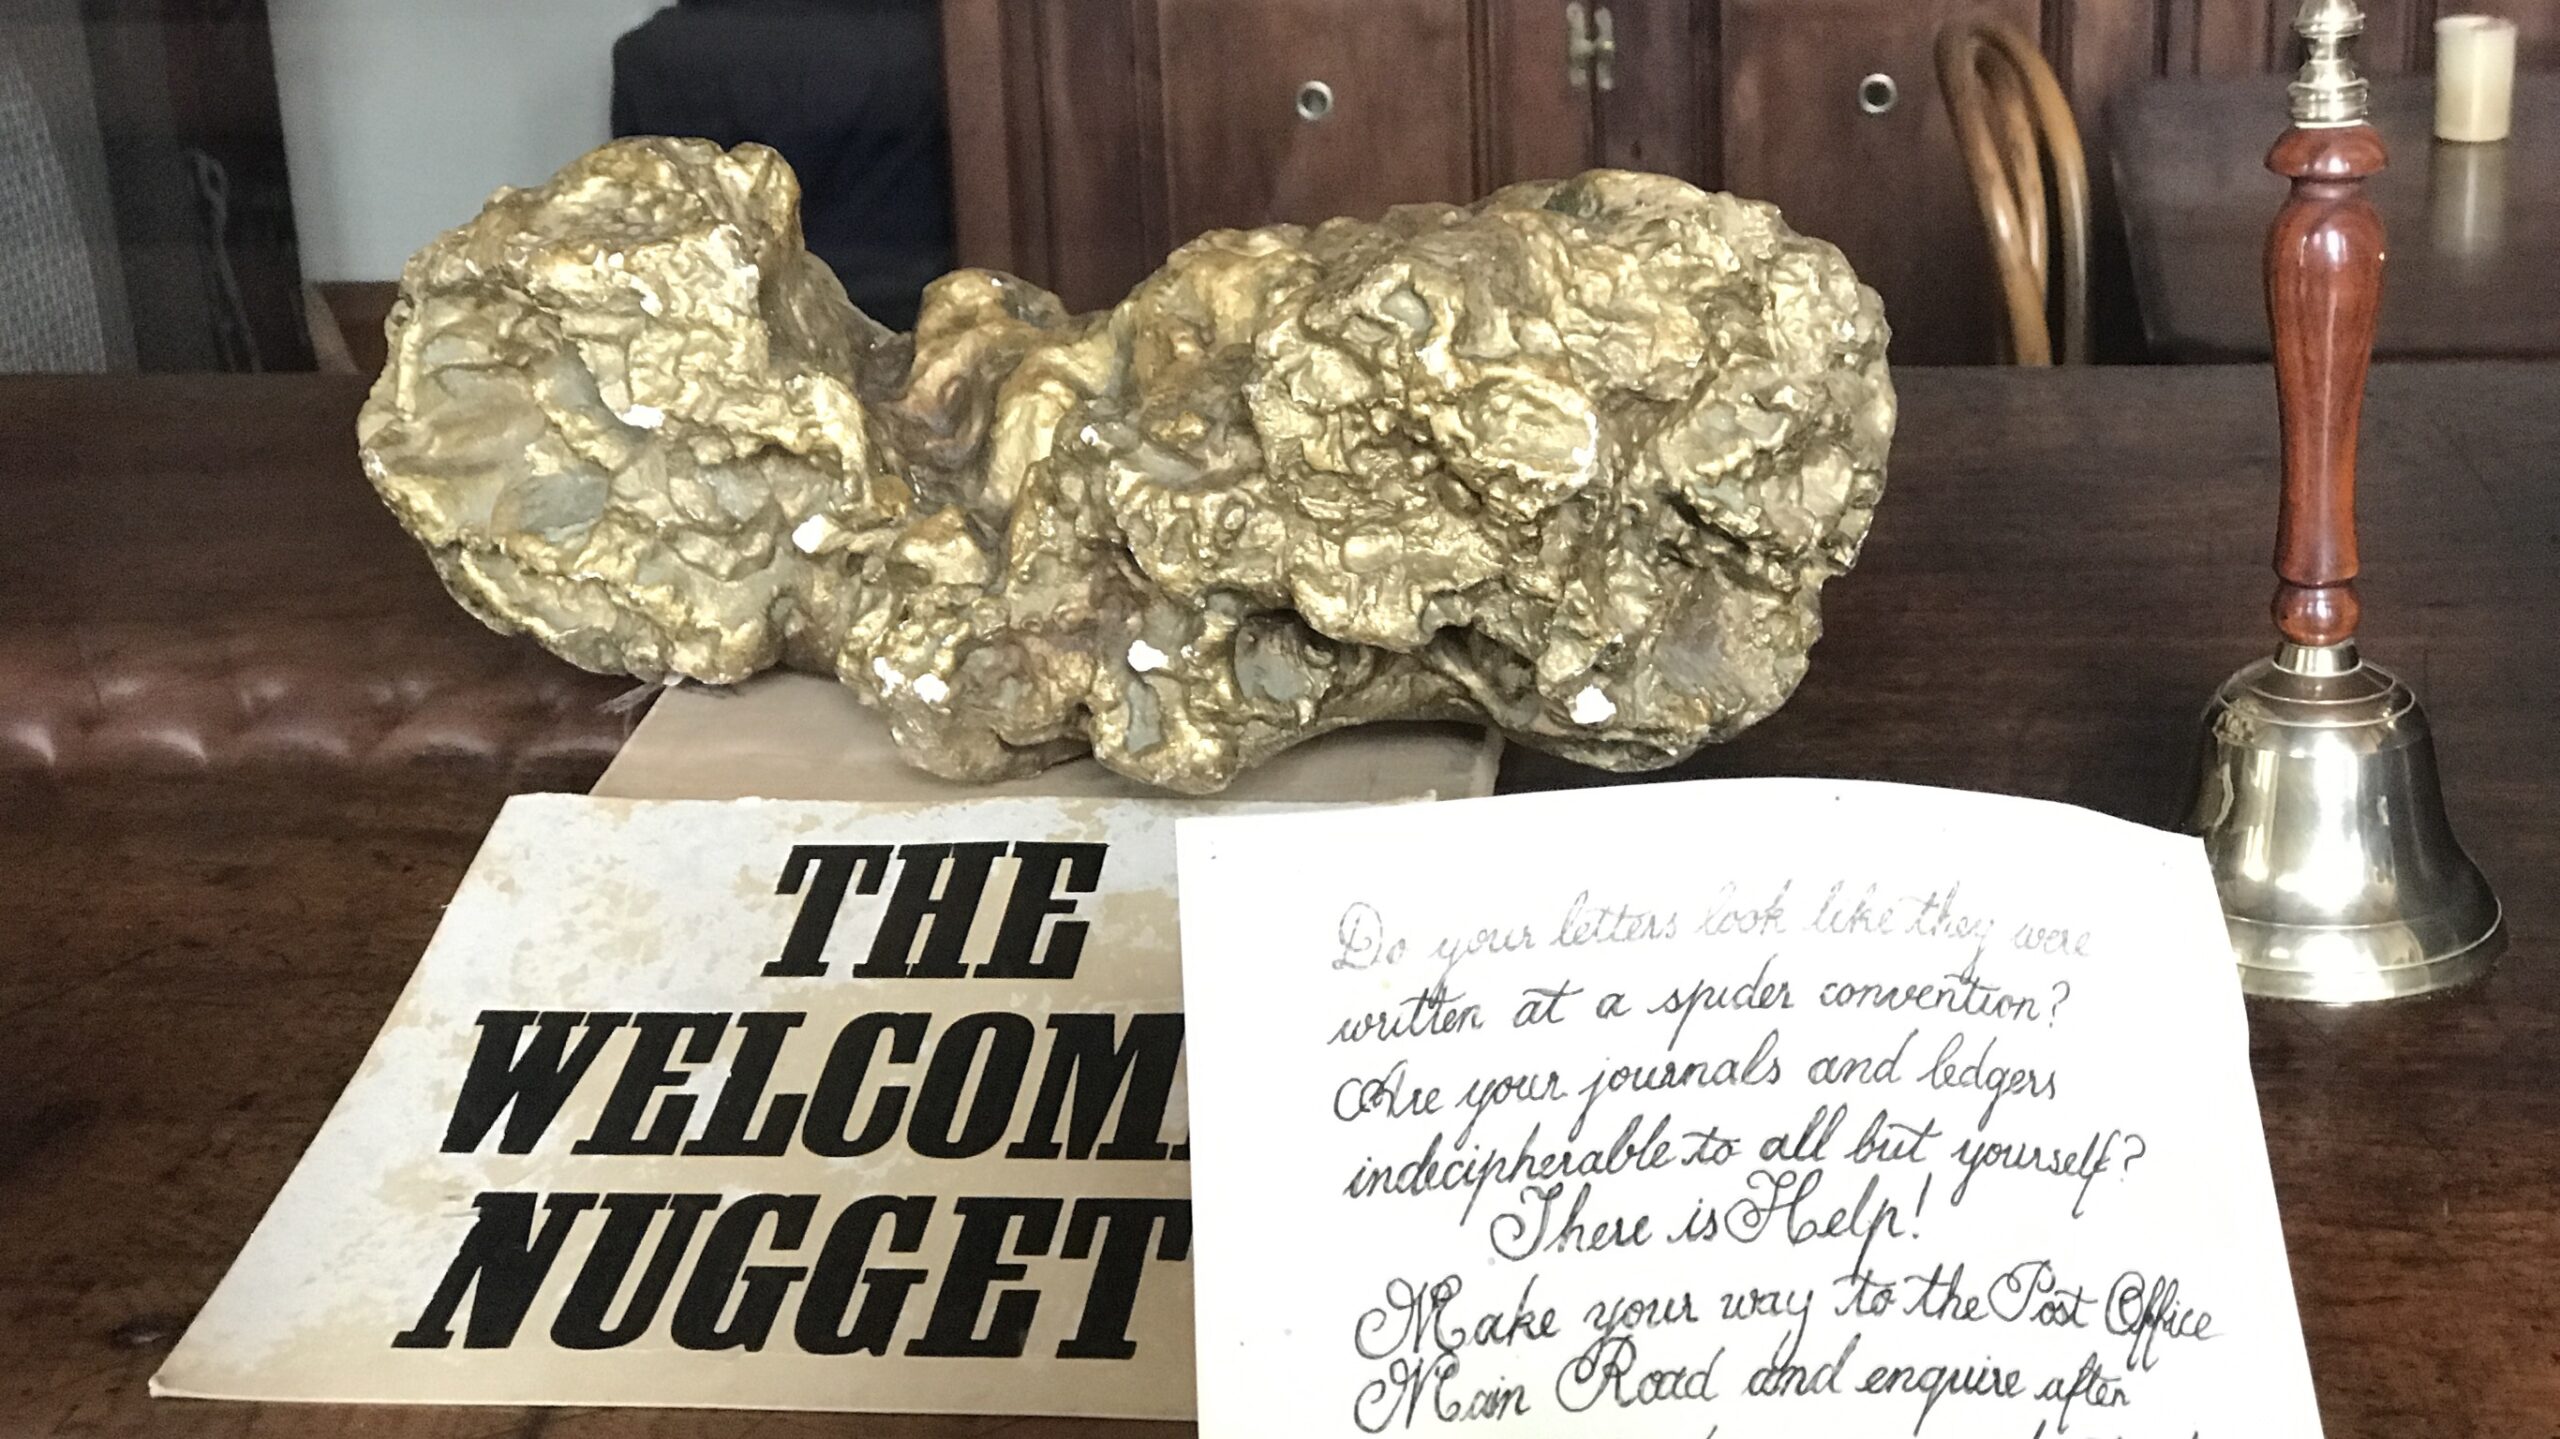 THE
WELCOM
NUGGET
Do your letters look like they were
written at a spider convention?
Are your journals and ledgers
indecipherable to all but yourself?
There is Help!
Make your way to the Post Office
Main Road and enquire after